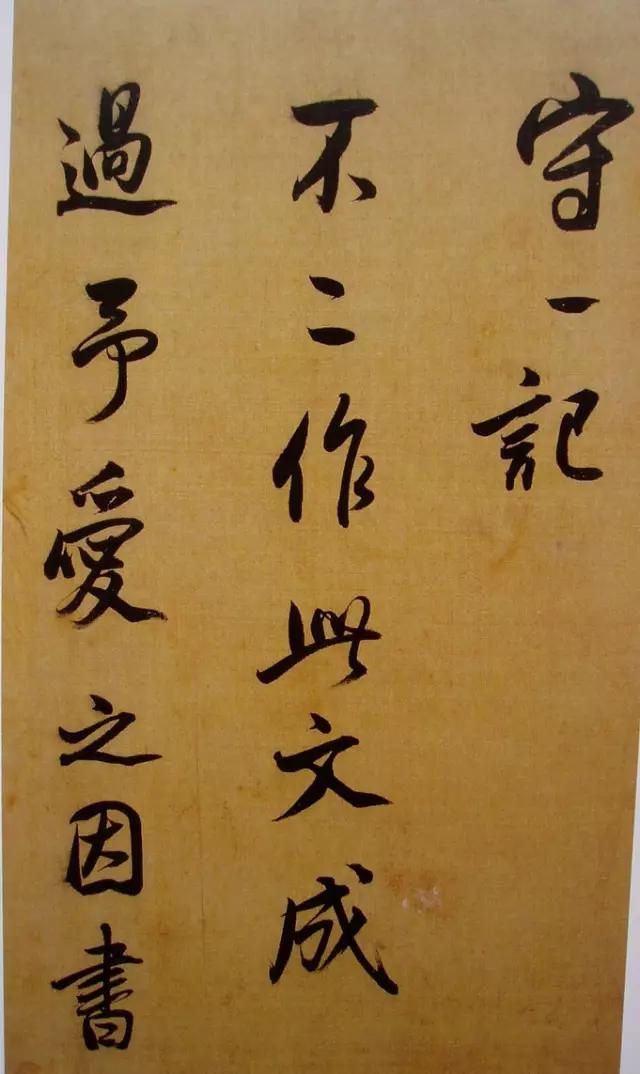 守一記
不二作此文成
過予愛之因書